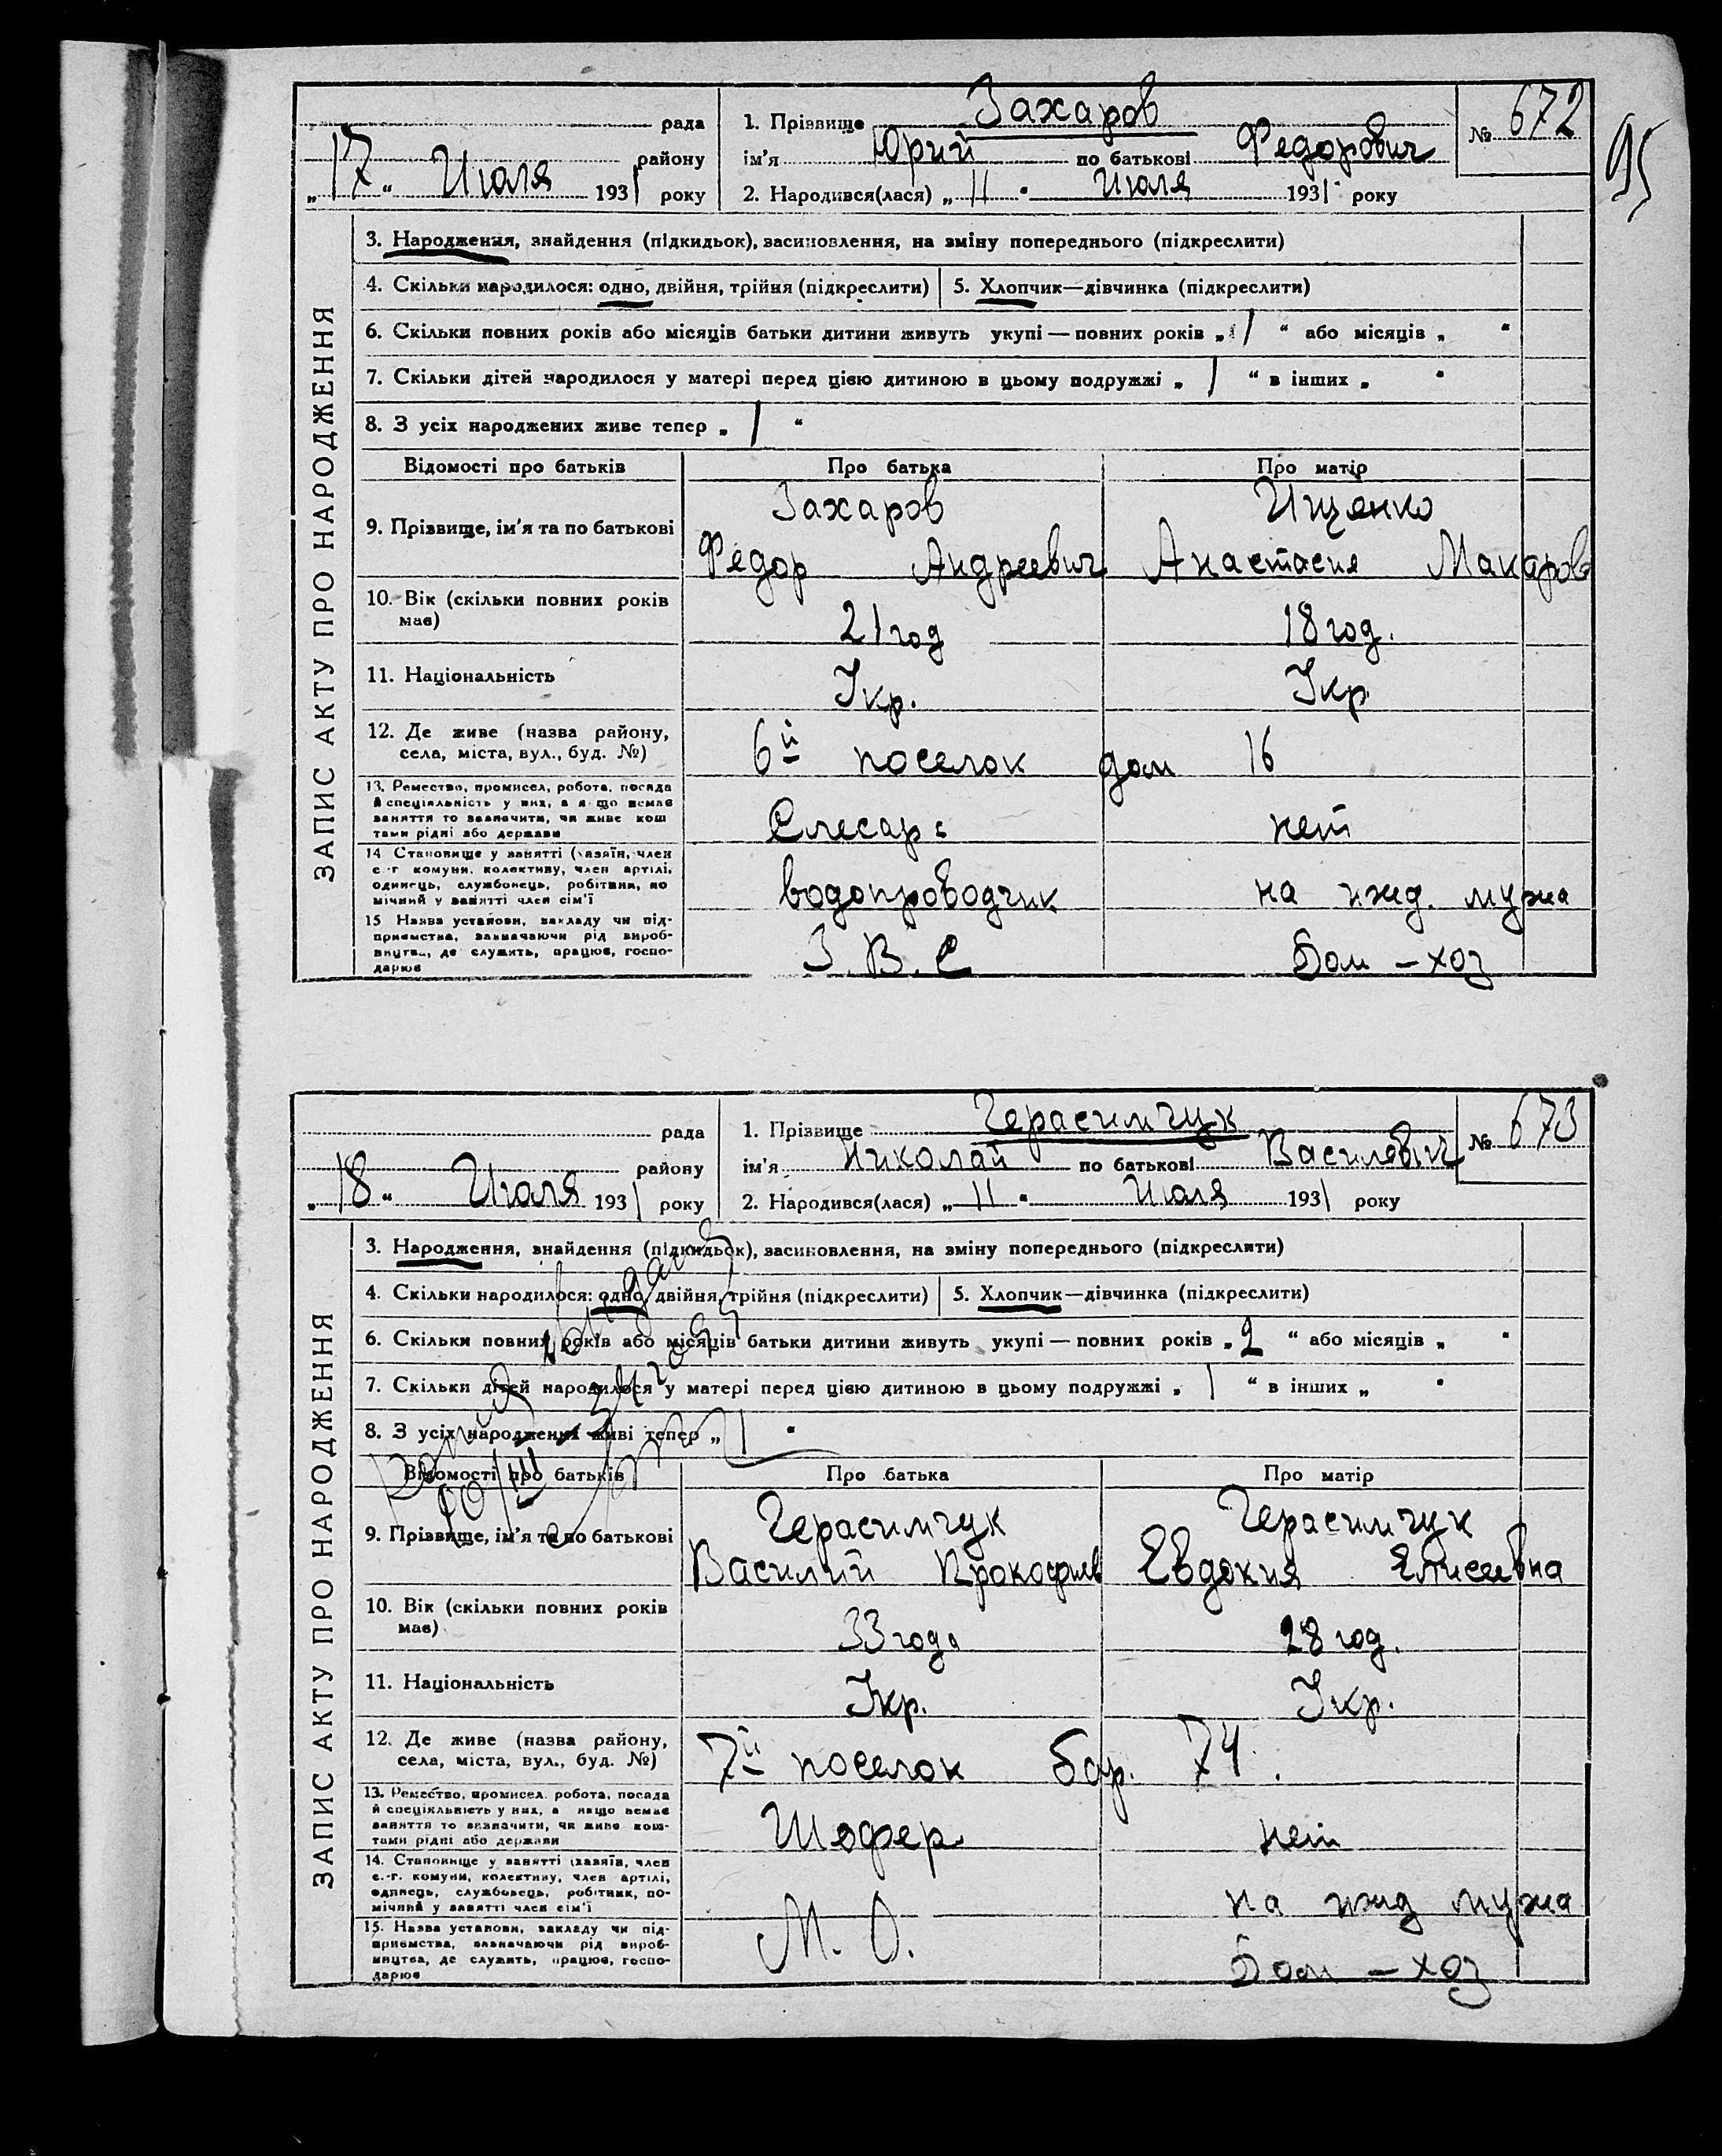 95
рада
района
"17" Июля 1931 року
1. Прізвище Захаров
ім'я Юрий по батькові Федорович
2. Народився(лася) "11" Июля 1931 року
№ 672
ЗАПИС АКТУ ПРО НАРОДЖЕННЯ
3. Народження, знайдення (підкидьок), засиновлення, на зміну попереднього (підкреслити)
4. Скільки народилося: одно, двійня, трійня (підкреслити) 5. Хлопчик—дівчинка (підкреслити)
6. Скільки повних років або місяців батьки дитини живуть укупі — повних років „ 1 “ або місяців „ “
7. Скільки дітей народилося у матері перед цією дитиною в цьому подружжі „ 1 “ в інших „ “
8. З усіх народжених живе тепер „ 1 “
Відомості про батьків Про батька Про матір
9. Прізвище, ім'я та по батькові
Захаров Ищенко
Федор Андреевич Анастасия Макаров
10. Вік (скільки повних років має) 21 год 18 год.
11. Національність Укр. Укр
12. Де живе (назва району, села, міста, вул., буд. №) 6й поселок дом 16
13. Ремество, промисел, робота, посада
й спеціяльність у них, а якщо немає
заняття то зазначити, чи живе кош
тами рідні або держави
Слесарь нет
14 Становище у занятті (хазяїн, член
с.-г комуни, колективу, член артілі,
одинець, службовець, робітник, по
мічний у занятті член сім'ї
водопроводчик на ижд. мужа
15 Назва установи, закладу чи під-
приємства, зазначаючи рід вироб-
ництва, де служить, працює, госпо-
дарює
З. В. С Дом – хоз
рада
району
"18" Июля 1931 року
1. Прізвище Герасимчук
ім'я Николай по батькові Василевич
2. Народився(лася) „11“ Июля 1931 року
№ 673
ЗАПИС АКТУ ПРО НАРОДЖЕННЯ
3. Народження, знайдення (підкидьок), засиновлення, на зміну попереднього (підкреслити)
4. Скільки народилося: одно, двійня, трійня (підкреслити) 5. Хлопчик—дівчинка (підкреслити)
6. Скільки повних років або місяців батьки дитини живуть укупі — повних років „ 2 “ або місяців „ “
7. Скільки дітей народилося у матері перед цією дитиною в цьому подружжі „ 1 “ в інших „ “
8. З усіх народжених живі тепер „ 1 “
Відомості про батьків Про батька Про матір
9. Прізвище, ім'я та по батькові
Герасимчук Герасимчук
Василий Прокофиев Евдокия Елисеевна
10. Вік (скільки повних років має) 33 года 28 год.
11. Національність Укр. Укр.
12. Де живе (назва району, села, міста, вул., буд. №) 7й поселок бар. 74.
13. Ремество, промисел, робота, посада
й спеціяльність у них, а якщо немає
заняття то зазначити, чи живе кош-
тами рідні або держави
Шофер нет
14. Становище у занятті (хазяїн, член
с.-г. комуни, колективу, член артілі,
одинець, службовець, робітник, по-
мічний у занятті член сім'ї
на ижд мужа
15. Назва установи, закладу чи під-
приємства, зазначаючи рід вироб-
ництва, де служить, працює, госпо-
дарює
М. О. Дом – хоз